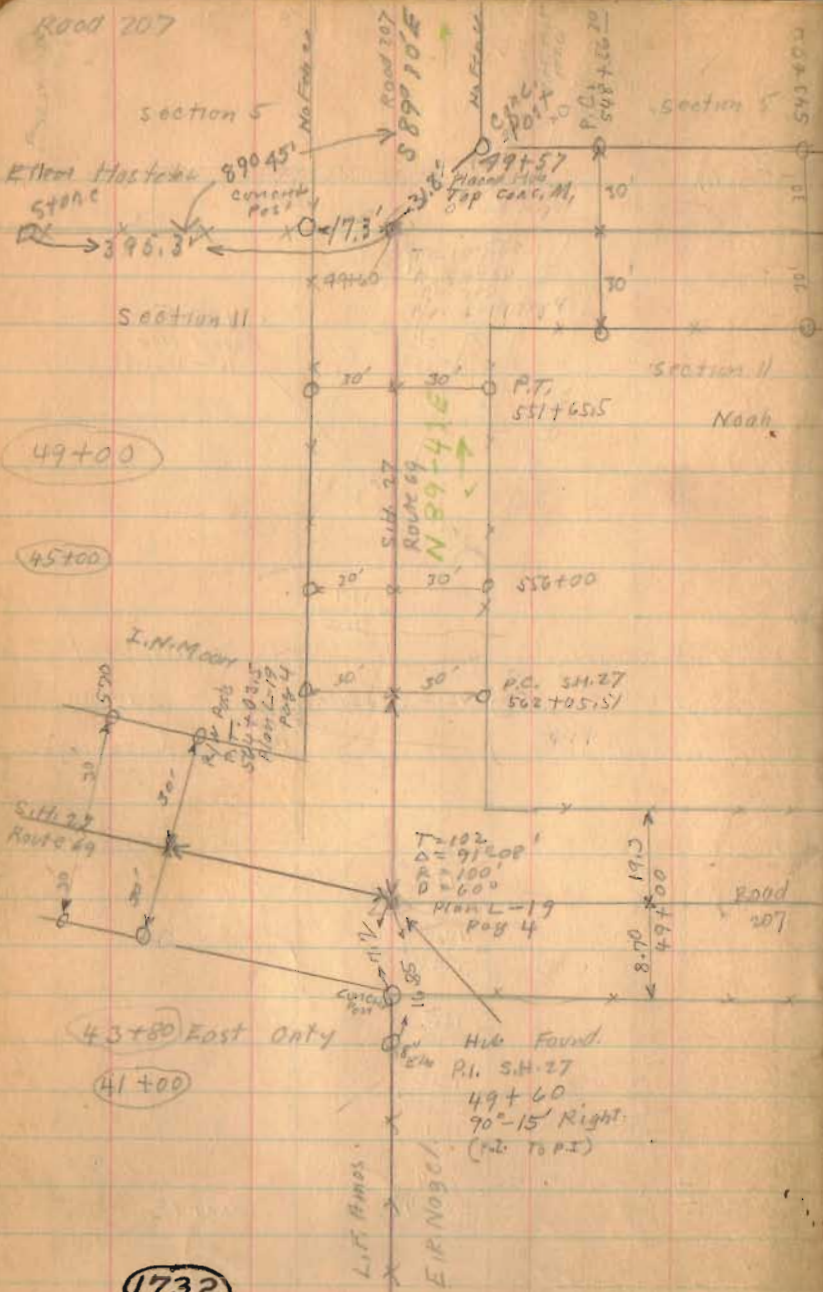 Road 207
No Fence
Road 207
S 89° 30' E
No Fence
Conc.
Post
P.C.
548+56.20
section 5
section 5
543+00
89° 45'
Stone
395.3'
concrete
Post
17.3'
31.8'
49+57
Placed Hub
Top Conc. M.
30'
30'
30'
30'
49+60
Section 11
section 11
Noah
30'
30'
P.T.
551+65.5
49+00
S.H. 27
Route 69
N 89-41 E
45+00
30'
30'
556+00
I.N. Moon
30'
30'
P.C. S.H. 27
562+05.51
570
R/W Post
P.T.
564+03.5
Plan L-19
Pag 4
30'
30'
S.H. 27
Route 69
30'
30'
T=102'
Δ=91°08'
R=100'
D=60°
Plan L-19
Pag 4
19.3
49+00
8.70
Road
207
11.2
16.85
concrete
Post
43+80 East Only
8" Elm
41+00
Hub Found.
P.I. S.H. 27
49+60
90°-15' Right
(P.I. To P.I)
L.F. Amos.
E.R. Nogel.
1732